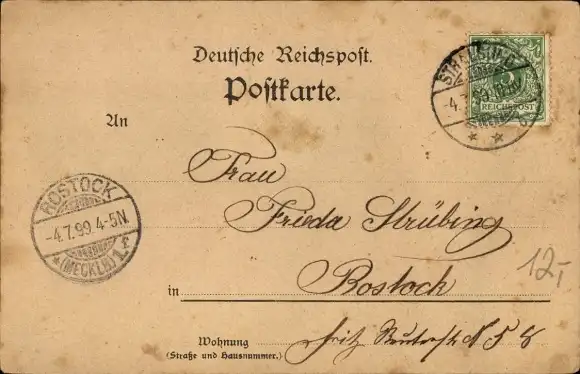 Deutsche Reichspost.
Postkarte.
An
Frau
Frieda Strübing
in Rostock
Wohnung
(Straße und Hausnummer.)
Fritz Reuterstr. N 58
ROSTOCK
-4.7.99.4-5N.
*(MECKLB)1.f
-4.7.99.
REICHSPOST
12,-